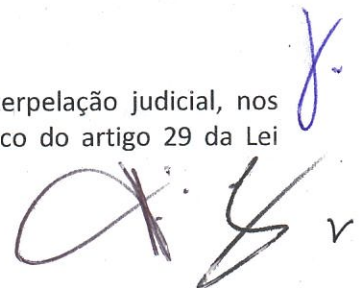 erpelação judicial, nos
co do artigo 29 da Lei